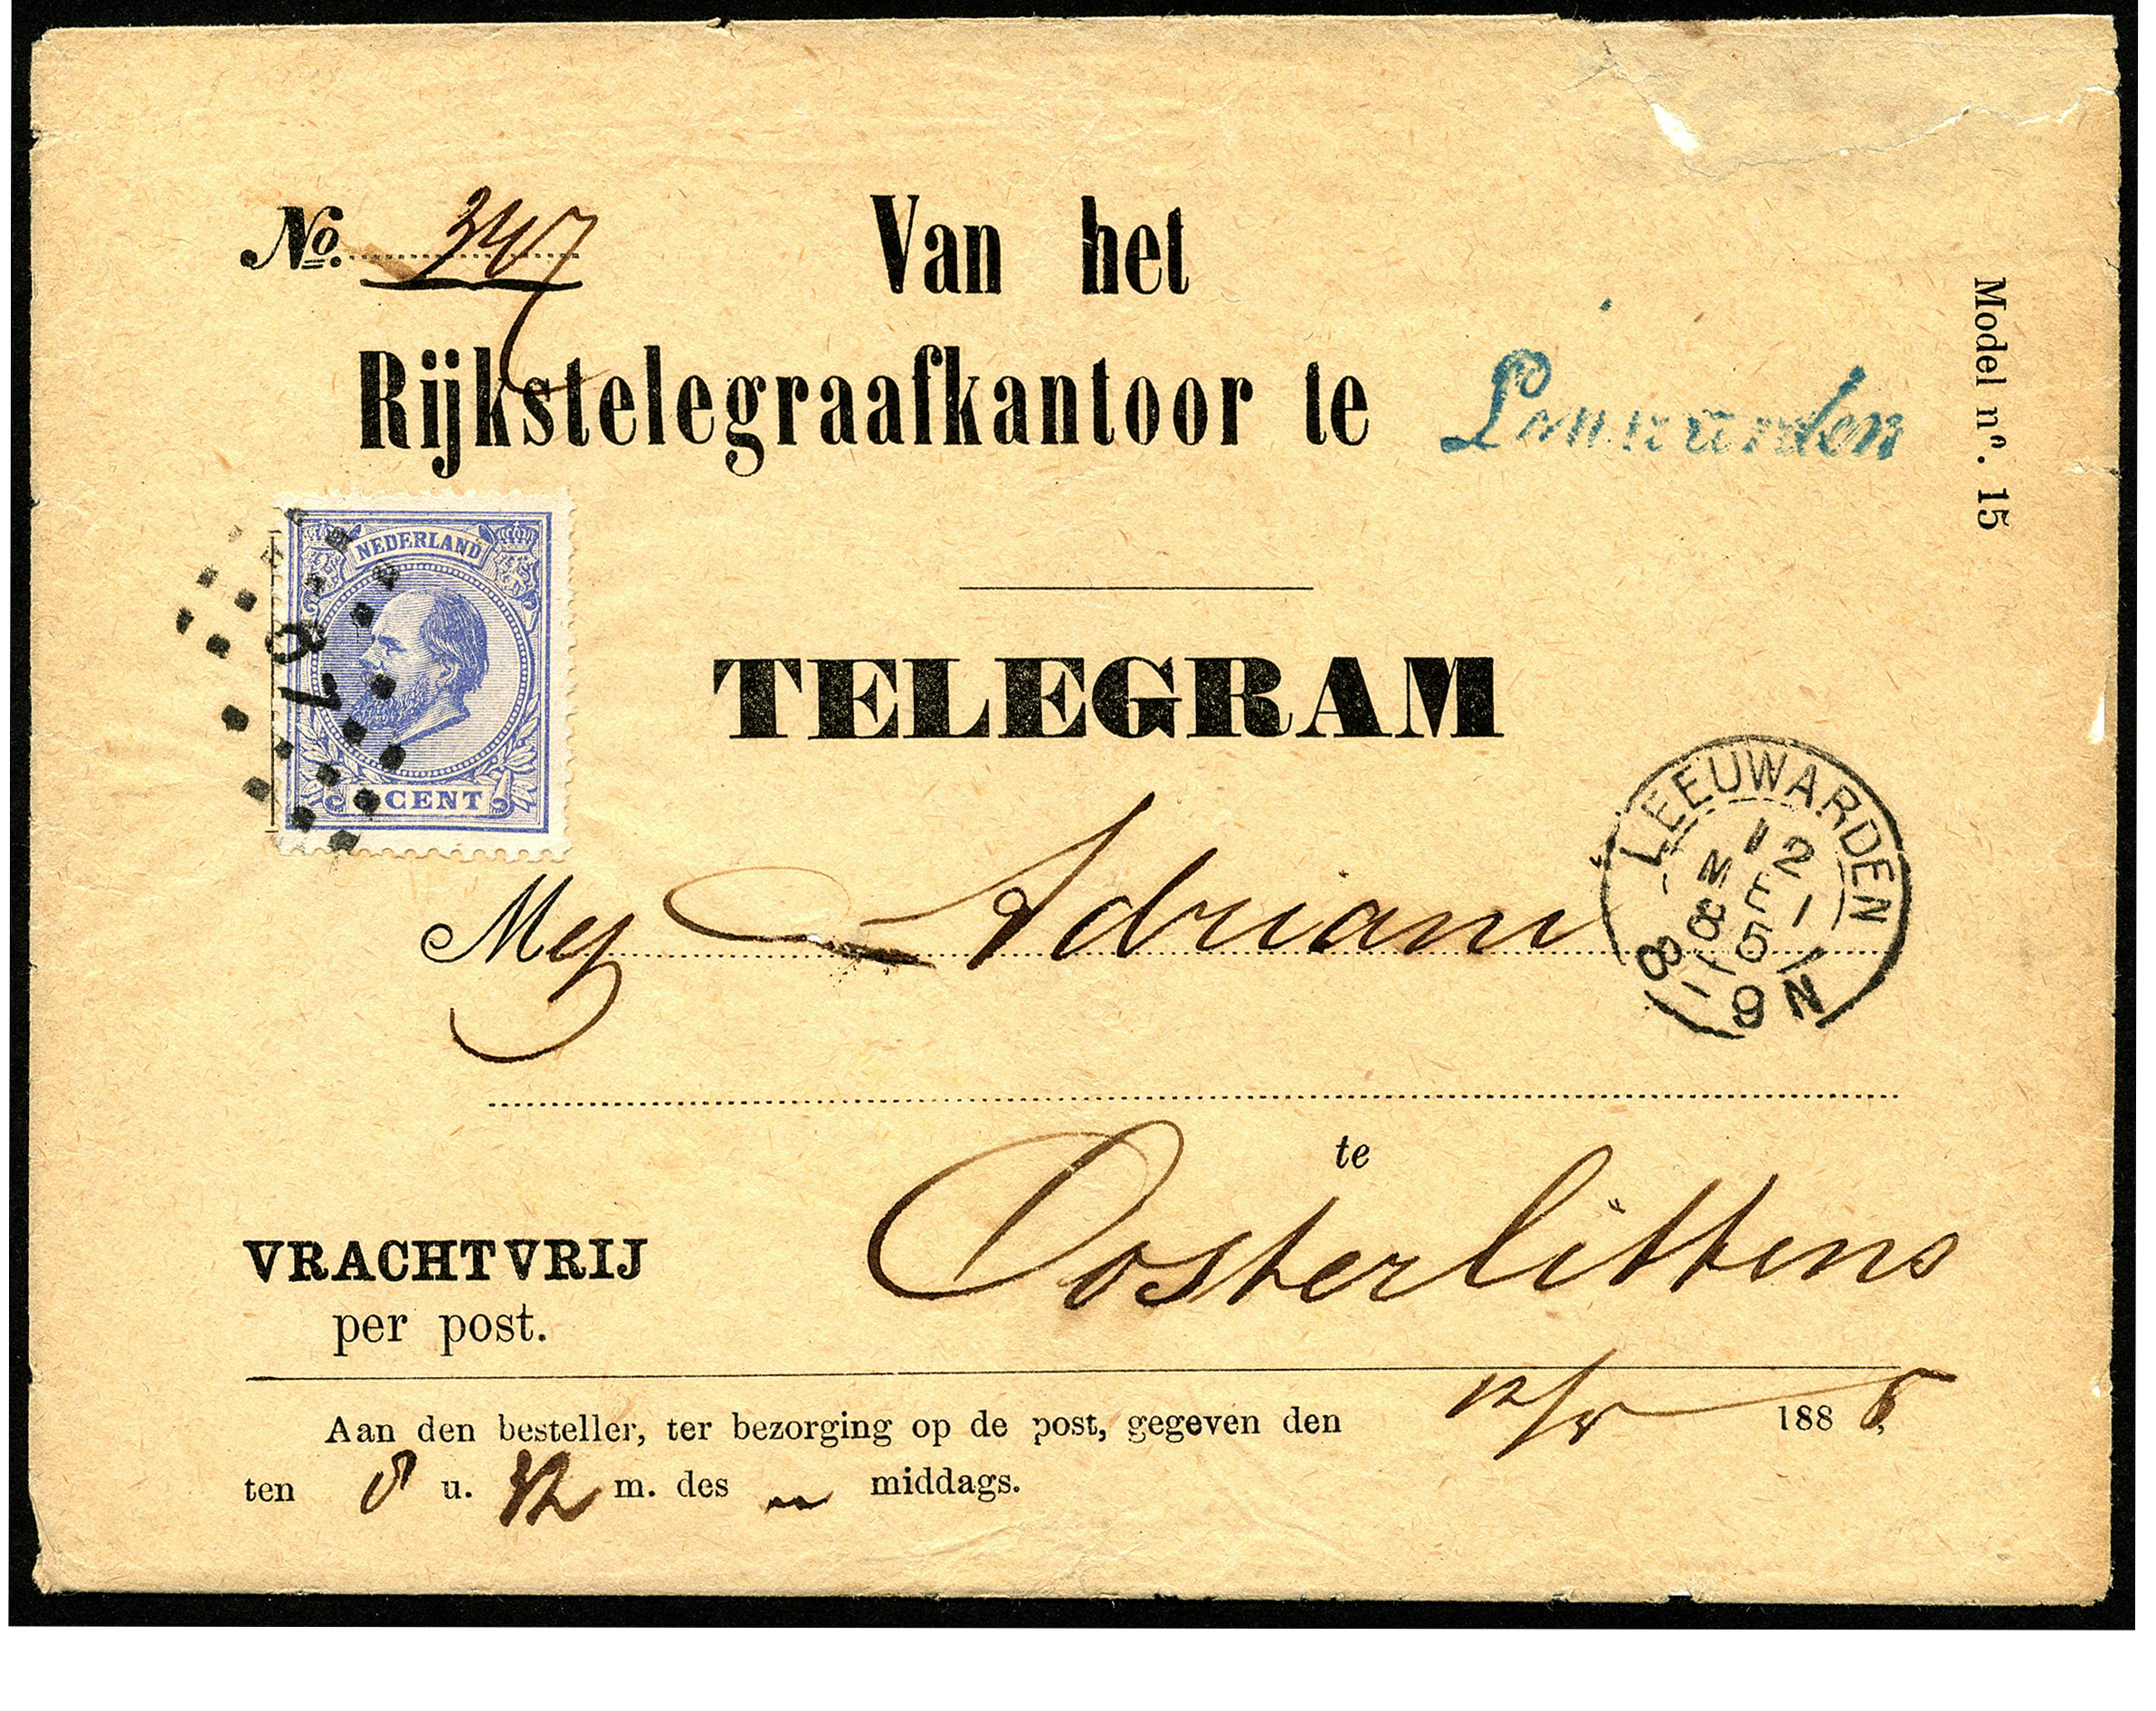 No. 347
Van het
Rijkstelegraafkantoor te Leeuwarden
Model nº. 15
NEDERLAND
67
CENT
TELEGRAM
LEEUWARDEN
12
MEI
85
8-9N
Adriani
te
Oosterlittens
VRACHTVRIJ
per post.
Aan den besteller, ter bezorging op de post, gegeven den 12/5 1885,
ten 8 u. m. des middags.